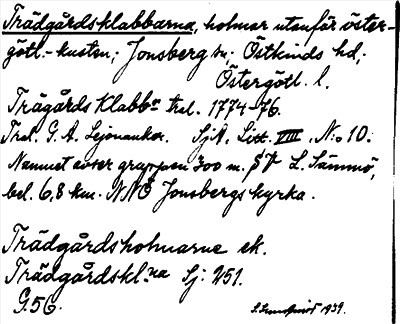 Trädgårdsklabbarna, holmar utanför öster-
götl.-kusten; Jonsberg sn. Östkinds hd,
Östergötl. l.
Trägårds Klabbn Tral. 1774-76.
Tral. G. A. Lejonanckar. SjA, Litt. VIII, N:o 10.
Namnet avser gruppen 300 m. SV L. Lämmö,
bel. 6,8 km. NNÖ Jonsbergs kyrka.
Trädgårdsholmarne ek.
Trädgårdskl.na Sj: 251.
G.56. 1939.